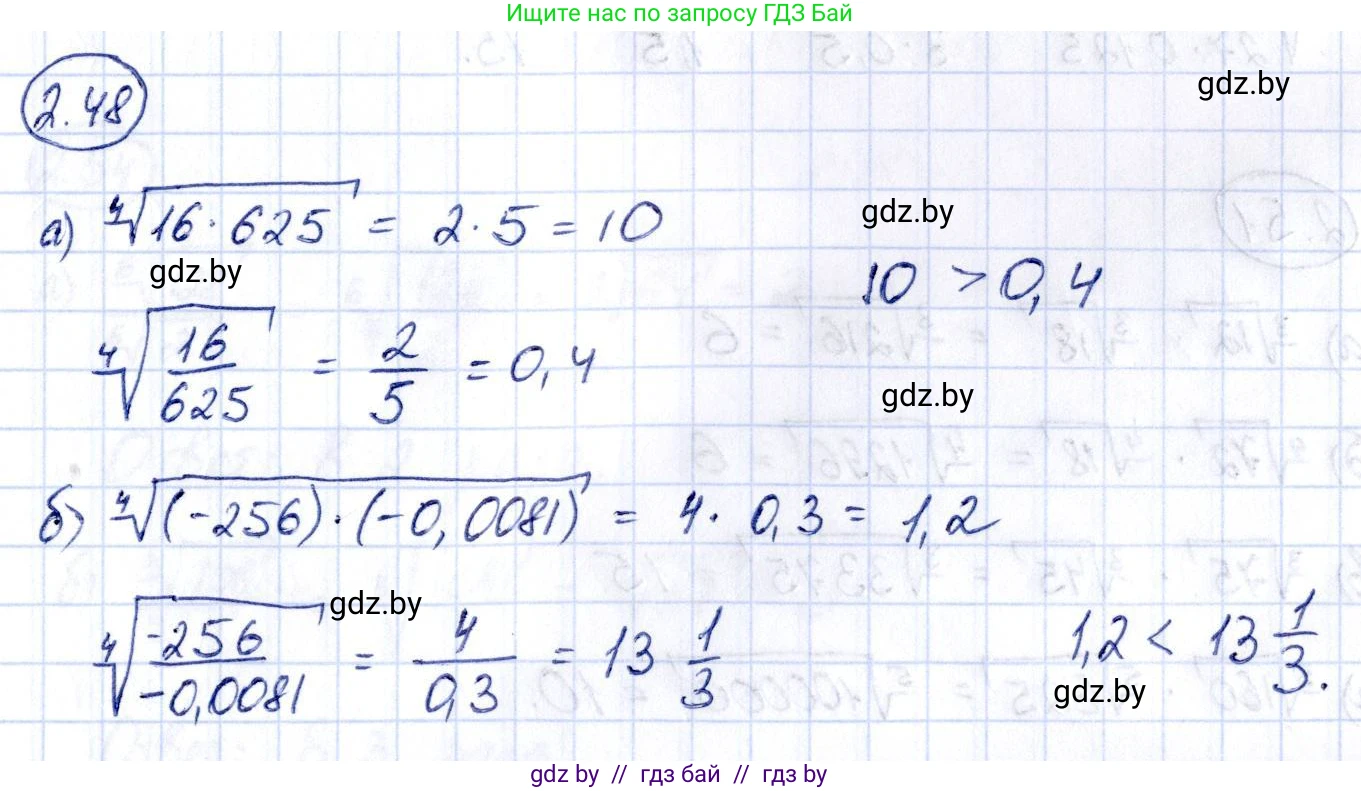 Ищите нас по запросу ГДЗ Бай
gdz.by
2.48
а) ∜(16·625) = 2·5 = 10
gdz.by
gdz.by
10 > 0,4
∜(16/625) = 2/5 = 0,4
gdz.by
б) ∜((-256)·(-0,0081)) = 4·0,3 = 1,2
gdz.by
∜(-256/-0,0081) = 4/0,3 = 13 1/3
1,2 < 13 1/3.
gdz.by
gdz by // гдз бай // гдз by